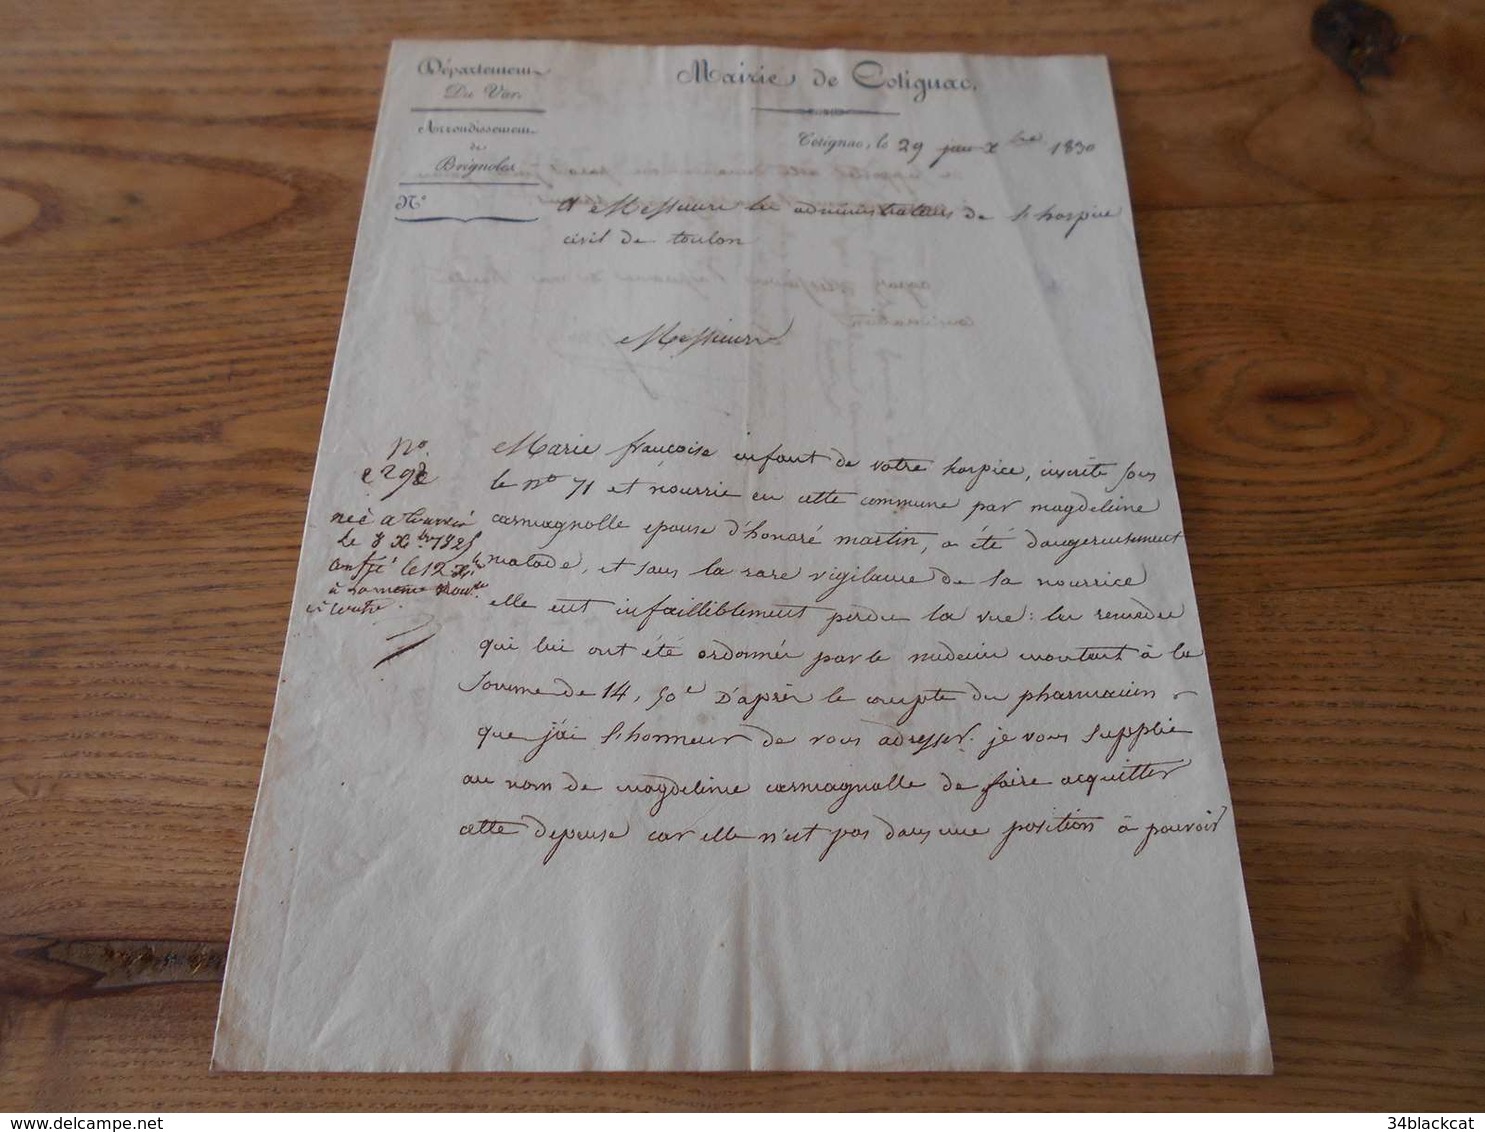 Département
Du Var.
Arrondissement
de
Brignoles
N°
Mairie de Cotignac.
Cotignac, le 29 Xbre 1830
A Messieurs les administrateurs de l'hospice
civil de toulon
Messieurs
N°
292
née à
le 8 Xbre 1825
confié le 12 Xbre
à la même
Marie françoise enfant de votre hospice, inscrite sous
le n° 71 et nourrie en cette commune par magdeleine
carmagnolle epouse d'honoré martin, a été dangereusement
malade, et sans la rare vigilance de la nourrice
elle eut infailliblement perdu la vue: les remedes
qui lui ont été ordonnés par le medecin montent à la
somme de 14, 50c D'après le compte du pharmacien
que j'ai l'honneur de vous adresser. je vous supplie
au nom de magdeleine carmagnolle de faire acquitter
cette depense car elle n'est pas dans une position à pouvoir
34blackcat
www.delcampe.net